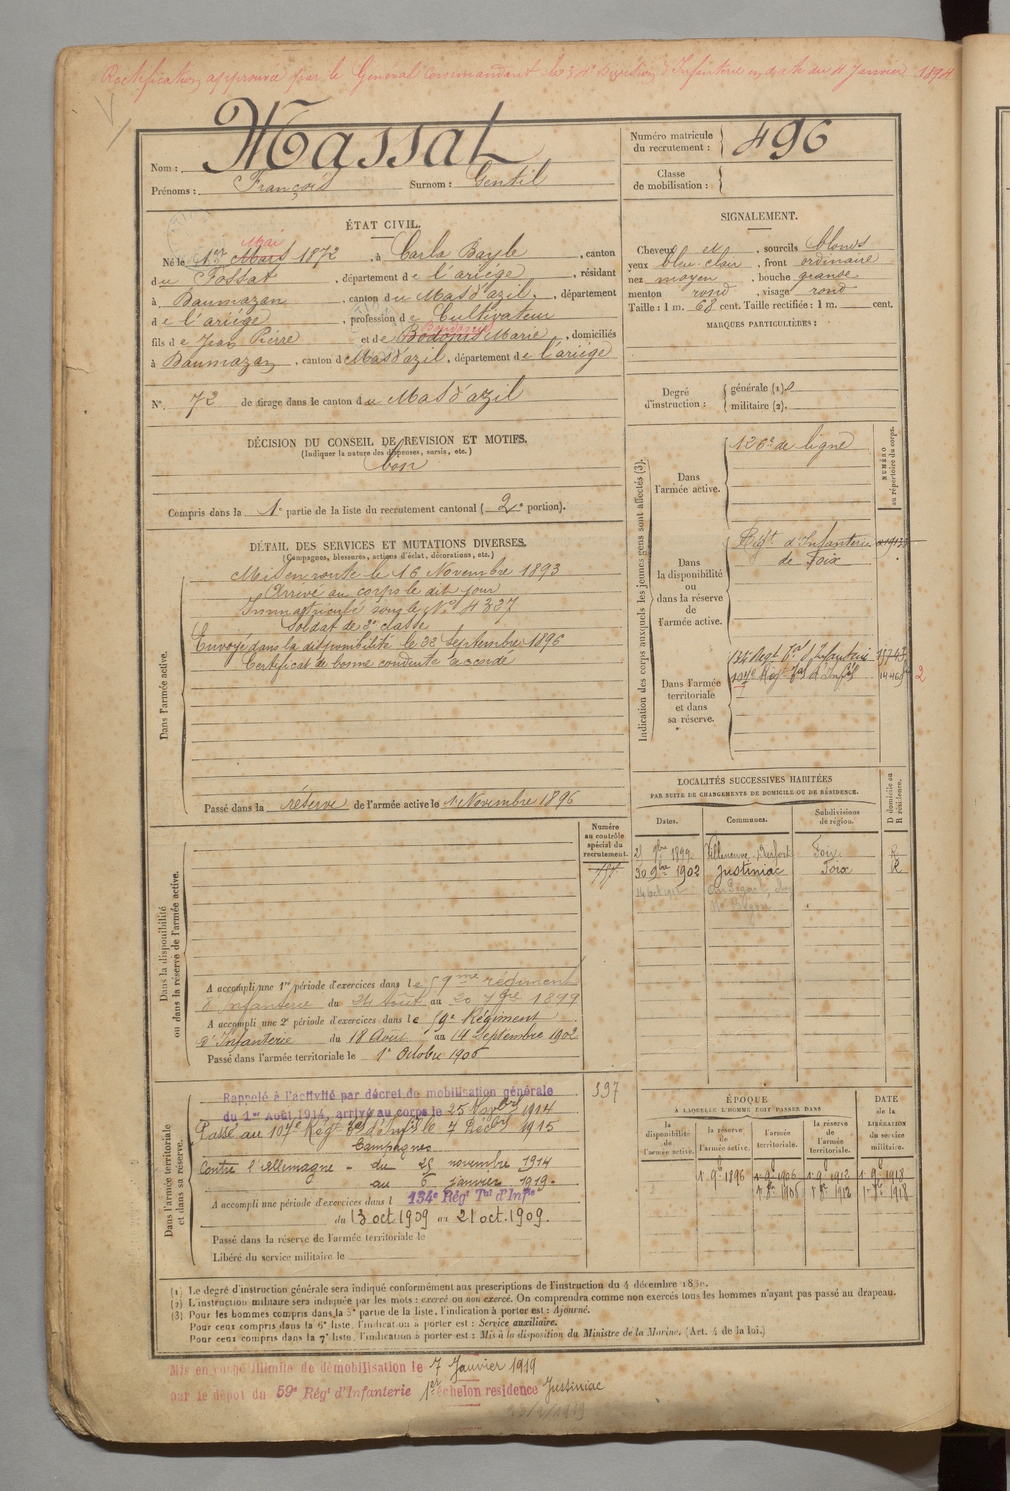 Rectification approuvée par le Général Commandant la 34e Division d'Infanterie en date du 4 Janvier 1894
Nom : Massat
Prénoms : François Surnom : Gentil
Numéro matricule du recrutement : 496
Classe de mobilisation :
ÉTAT CIVIL.
Mai
Né le 1er Mars 1872, à Carla Bayle, canton
du Fossat, département de l'ariége, résidant
à Daumazan, canton du Mas d'azil, département
de l'ariége, profession de Cultivateur
fils de Jean Pierre et de Marie, domiciliés
à Daumazan, canton du Mas d'azil, département de l'ariége
N°. 72 de tirage dans le canton du Mas d'azil
SIGNALEMENT.
Cheveux et, sourcils blonds
yeux bleu-clair, front ordinaire
nez moyen, bouche grande
menton rond, visage rond
Taille : 1 m. 68 cent. Taille rectifiée : 1 m. cent.
MARQUES PARTICULIÈRES :
Degré d'instruction : générale (1). militaire (2).
DÉCISION DU CONSEIL DE REVISION ET MOTIFS.
(Indiquer la nature des dispenses, sursis, etc.)
bon
Compris dans la 1e partie de la liste du recrutement cantonal (2e portion).
DÉTAIL DES SERVICES ET MUTATIONS DIVERSES.
(Campagnes, blessures, actions d'éclat, décorations, etc.)
Dans l'armée active.
Mis en route le 16 Novembre 1893
Arrivé au corps le dit jour
Immatriculé sous le No 4337
Soldat de 2e classe
Envoyé dans la disponibilité le 22 Septembre 1896
Certificat de bonne conduite accordé
Passé dans la réserve de l'armée active le 1 Novembre 1896
Indication des corps auxquels les jeunes gens sont affectés (3).
NUMÉRO au répertoire du corps.
Dans l'armée active.
126e de ligne
Dans la disponibilité ou dans la réserve de l'armée active.
Régt d'Infanterie
de Foix
Dans l'armée territoriale et dans sa réserve.
134 Regt Tal d'Infanterie
107e Régt Tal d'Infie
2
LOCALITÉS SUCCESSIVES HABITÉES
PAR SUITE DE CHANGEMENTS DE DOMICILE OU DE RÉSIDENCE.
Dates. Communes. Subdivisions de région. D domicile ou R résidence.
21 9bre 1899 Villeneuve Durfort Foix R
30 9bre 1902 Justiniac Foix R
Dans la disponibilité ou dans la réserve de l'armée active.
Numéro au contrôle spécial du recrutement.
A accompli une 1re période d'exercices dans le 59me régiment
d'Infanterie du 24 Août au 20 7bre 1899
A accompli une 2e période d'exercices dans le 59e Régiment
d'Infanterie du 18 Août au 14 Septembre 1902
Passé dans l'armée territoriale le 1er Octobre 1906
Dans l'armée territoriale et dans sa réserve.
597
Rappelé à l'activité par décret de mobilisation générale
du 1er Août 1914, arrivé au corps le 25 Novbre 1914
Passé au 107e Régt Tal d'Infie le 7 Décbre 1915
Campagnes
Contre l'Allemagne - du 25 novembre 1914
au 6 janvier 1919.
A accompli une période d'exercices dans l 134e Régt Tal d'Infie
du 13 oct. 1909 au 21 oct. 1909.
Passé dans la réserve de l'armée territoriale le
Libéré du service militaire le
ÉPOQUE
A LAQUELLE L'HOMME DOIT PASSER DANS
DATE de la LIBÉRATION du service militaire.
la disponibilité de l'armée active. la réserve de l'armée active. l'armée territoriale. la réserve de l'armée territoriale.
1r 9b 1896 1r 9b 1906 1r 9b 1912 1r 9b 1918
(1) Le degré d'instruction générale sera indiqué conformément aux prescriptions de l'instruction du 4 décembre 1889.
(2) L'instruction militaire sera indiquée par les mots : exercé ou non exercé. On comprendra comme non exercés tous les hommes n'ayant pas passé au drapeau.
(3) Pour les hommes compris dans la 5e partie de la liste, l'indication à porter est : Ajourné.
Pour ceux compris dans la 6e liste, l'indication à porter est : Service auxiliaire.
Pour ceux compris dans la 7e liste, l'indication à porter est : Mis à la disposition du Ministre de la Marine. (Art. 4 de la loi.)
Mis en congé illimité de démobilisation le 7 Janvier 1919
par le dépôt du 59e Régt d'Infanterie 1er échelon residence Justiniac